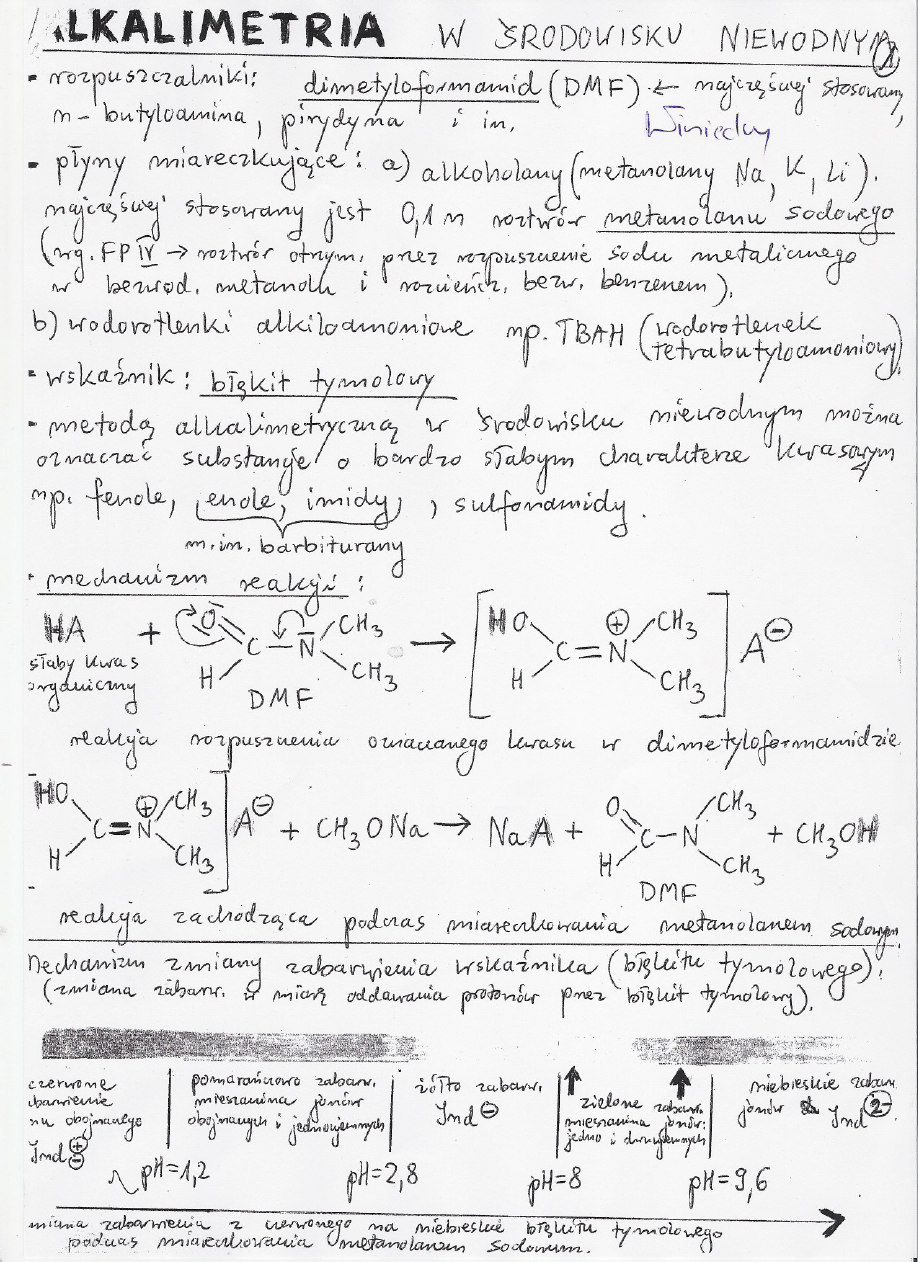 ALKALIMETRIA W ŚRODOWISKU NIEWODNYM
- rozpuszczalniki: dimetyloformamid (DMF) ← najczęściej stosowany,
n-butyloamina, pirydyna i in.
- płyny miareczkujące: a) alkoholany (metanolany Na, K, Li).
najczęściej stosowany jest 0,1 n roztwór metanolanu sodowego
(wg. FP IV → roztwór otrzym. przez rozpuszczenie sodu metalicznego
w bezwod. metanolu i rozcieńcz. bezw. benzenem).
b) wodorotlenki alkiloamoniowe np. TBAH (wodorotlenek
tetrabutyloamoniowy).
- wskaźnik: błękit tymolowy
- metodą alkalimetryczną w środowisku niewodnym można
oznaczać substancje o bardzo słabym charakterze kwasowym
np. fenole, enole, imidy, sulfonamidy.
m.in. barbiturany
- mechanizm reakcji:
HA + O C H N CH3 CH3 → [HO C H N ⊕ CH3 CH3] A⊖
słaby kwas
organiczny
DMF
reakcja rozpuszczenia oznaczanego kwasu w dimetyloformamidzie
HO C H N ⊕ CH3 CH3] A⊖ + CH3ONa → NaA + O C H N CH3 CH3 + CH3OH
DMF
reakcja zachodząca podczas miareczkowania metanolanem sodowym.
Mechanizm zmiany zabarwienia wskaźnika (błękitu tymolowego).
(zmiana zabarw. w miarę oddawania protonów przez błękit tymolowy).
czerwone
zabarwienie
jonu obojnaczego
Ind ⊕⊖
pomarańczowo zabarw.
mieszanina jonów
obojnaczych i jednoujemnych
żółto zabarw.
Ind ⊖
zielone zabarw.
mieszanina jonów:
jedno i dwuujemnych
niebieskie zabarw.
jonów Ind 2-
pH=1,2 pH=2,8 pH=8 pH=9,6
zmiana zabarwienia z czerwonego na niebieskie błękitu tymolowego
podczas miareczkowania metanolanem sodowym.